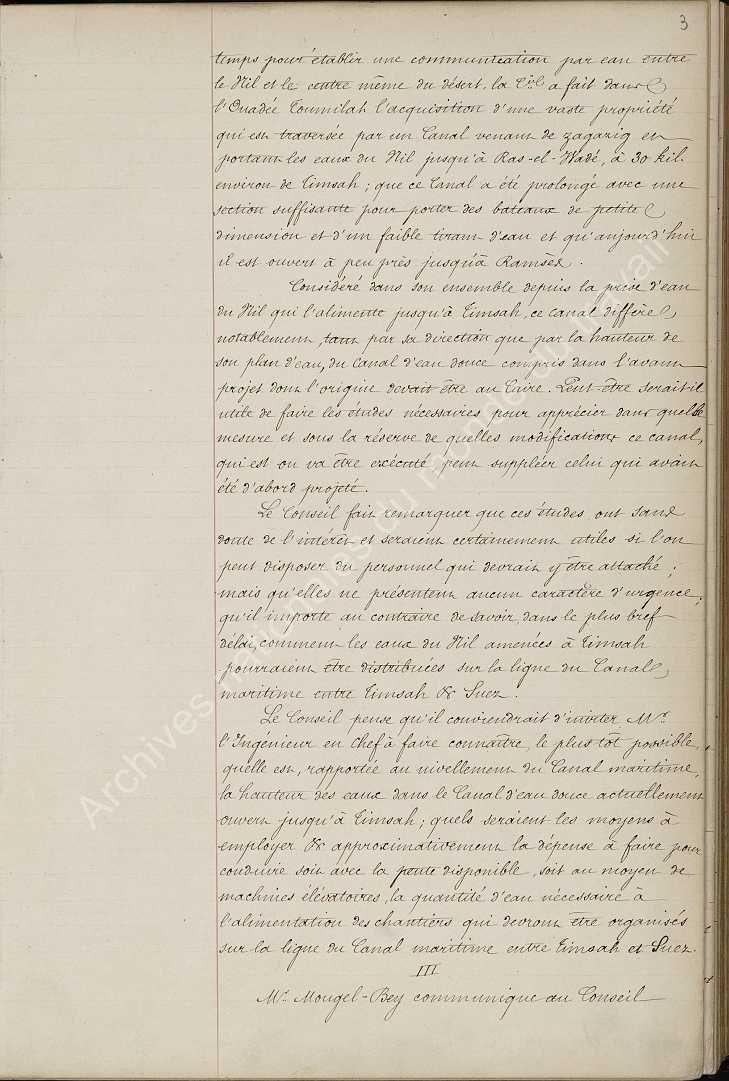 3
temps pour établir une communication par eau entre
le Nil et le centre même du désert, la Cie a fait dans
l'Ouadée Toumilah l'acquisition d'une vaste propriété
qui est traversée par un Canal venant de Zagazig et
portant les eaux du Nil jusqu'à Ras-el-Wadé, à 30 kil.
environ de Timsah ; que ce Canal a été prolongé avec une
section suffisante pour porter des bateaux de petite
dimension et d'un faible tirant d'eau et qu'aujourd'hui
il est ouvert à peu près jusqu'à Ramsès.
Considéré dans son ensemble depuis la prise d'eau
du Nil qui l'alimente jusqu'à Timsah, ce canal diffère
notablement, tant par sa direction que par la hauteur de
son plan d'eau, du Canal d'eau douce compris dans l'avant
projet dont l'origine devait être au Caire. Peut-être serait-il
utile de faire les études nécessaires pour apprécier dans quelle
mesure et sous la réserve de quelles modifications ce canal,
qui est ou va être exécuté, peut suppléer celui qui avait
été d'abord projeté.
Le Conseil fait remarquer que ces études ont sans
doute de l'intérêt et seraient certainement utiles si l'on
peut disposer du personnel qui devrait y être attaché ;
mais qu'elles ne présentent aucun caractère d'urgence ;
qu'il importe au contraire de savoir, dans le plus bref
délai, comment les eaux du Nil amenées à Timsah
pourraient être distribuées sur la ligne du Canal
maritime entre Timsah & Suez.
Le Conseil pense qu'il conviendrait d'inviter Mr
l'Ingénieur en chef à faire connaître, le plus tôt possible,
quelle est, rapportée au nivellement du Canal maritime,
la hauteur des eaux dans le Canal d'eau douce actuellement
ouvert jusqu'à Timsah ; quels seraient les moyens à
employer & approximativement la dépense à faire pour
conduire soit avec la pente disponible, soit au moyen de
machines élévatoires, la quantité d'eau nécessaire à
l'alimentation des chantiers qui devront être organisés
sur la ligne du Canal maritime entre Timsah et Suez.
III
Mr Mougel-Bey communique au Conseil
Archives nationales du monde du travail